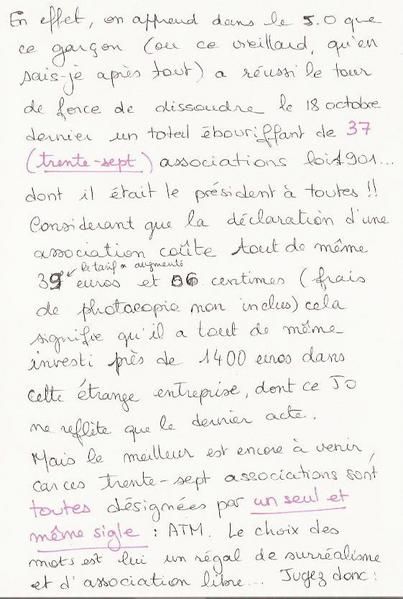 En effet, on apprend dans le J.O que
ce garçon (ou ce vieillard, qu'en
sais-je après tout) a réussi le tour
de force de dissoudre le 18 octobre
dernier un total ébouriffant de 37
(trente-sept) associations loi 1901...
dont il était le président à toutes !!
Considérant que la déclaration d'une
association coûte tout de même
le tarif a augmenté
39 euros et 06 centimes (frais
de photocopie non inclus) cela
signifie qu'il a tout de même
investi près de 1400 euros dans
cette étrange entreprise, dont ce JO
ne reflète que le dernier acte.
Mais le meilleur est encore à venir,
car ces trente-sept associations sont
toutes désignées par un seul et
même sigle : ATM. Le choix des
mots est lui un régal de surréalisme
et d'association libre... Jugez donc :